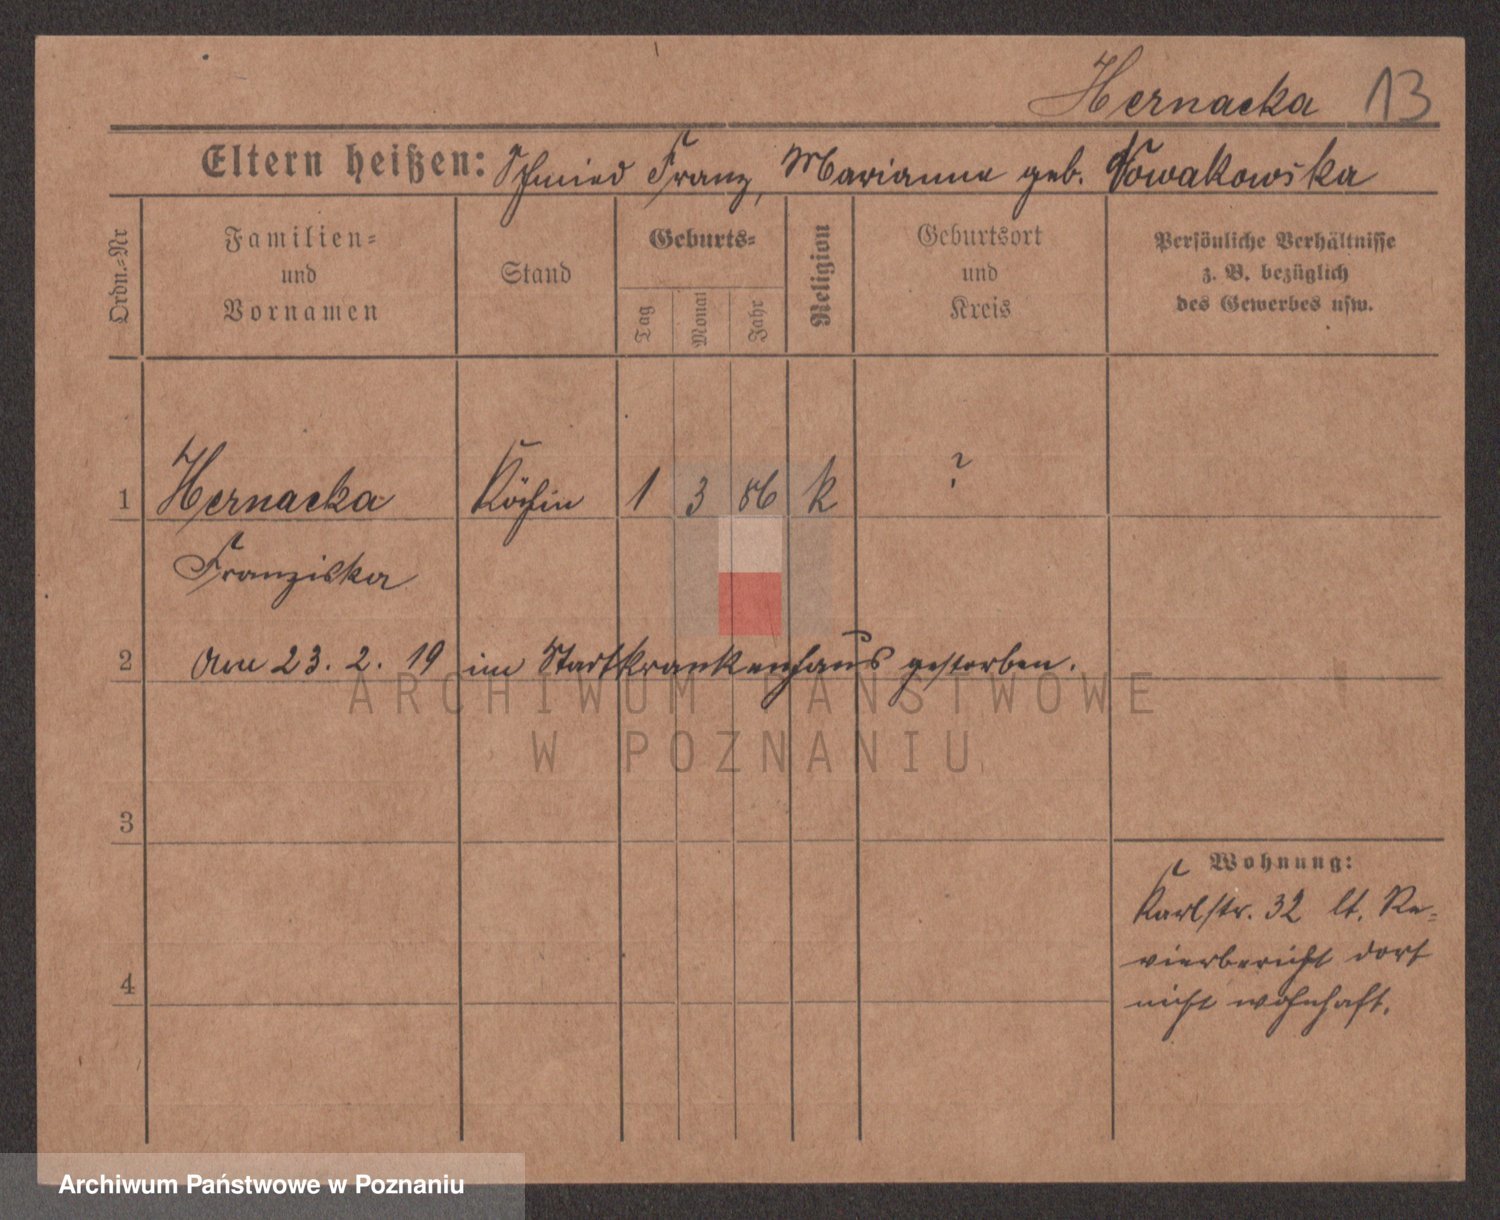 Hernacka 13
Eltern heißen: Schmied Franz, Marianne geb. Nowakowska
Ordn.-Nr
Familien-
und
Vornamen
Stand
Geburts-
Tag
Monat
Jahr
Religion
Geburtsort
und
Kreis
Persönliche Verhältnisse
z. B. bezüglich
des Gewerbes usw.
1 Hernacka Köchin 1 3 86 k ?
Franziska
2 Am 23. 2. 19 im Stadtkrankenhaus gestorben.
ARCHIWUM PAŃSTWOWE
W POZNANIU
3
Wohnung:
Karlstr. 32 lt. Re-
vierbericht dort
4
nicht wohnhaft.
Archiwum Państwowe w Poznaniu